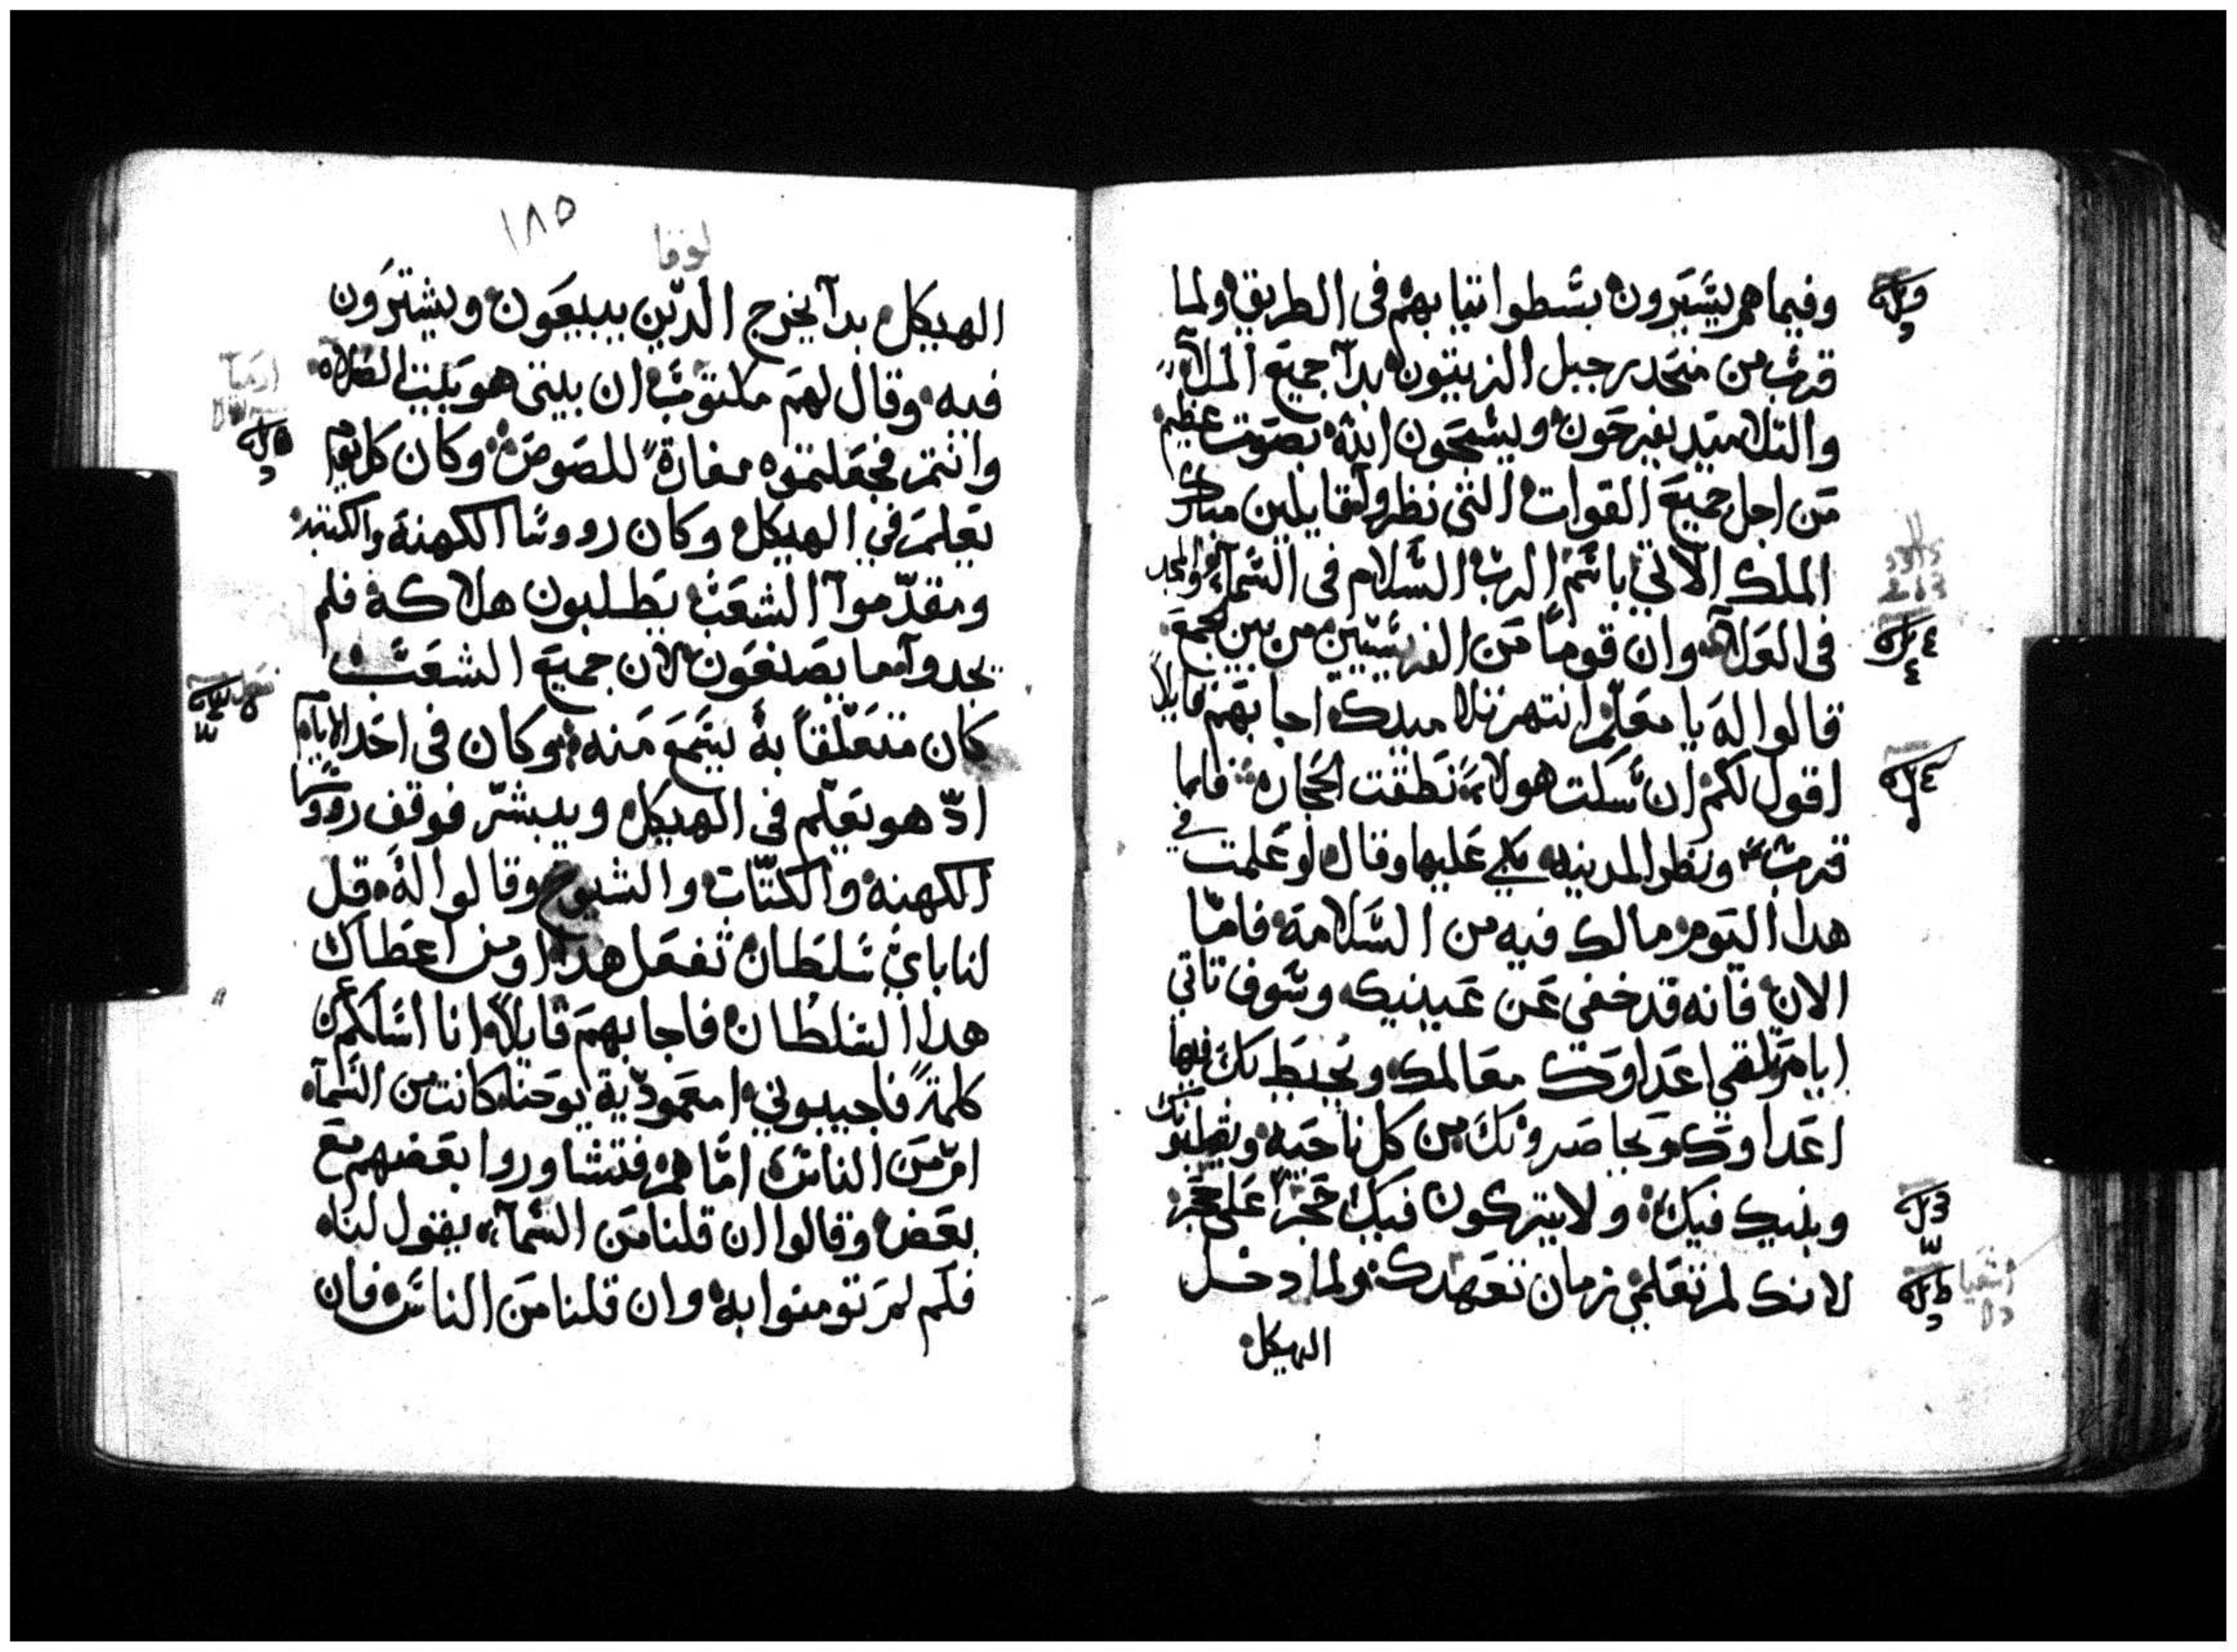 وفيما هم يسيرون بسطوا ثيابهم في الطريق ولما
قرب من منحدر جبل الزيتون بدآ جميع الملآ
والتلاميد يفرحون ويسبحون الله بصوت عظيم
من اجل جميع القوات التي نظروا قايلين مبارك
الملك الآتي باسم الرب السلام في السمآ والمجد
في العلآ وان قوماً من الفريسيين من بين الجمع
قالوا له يا معلم انتهر تلاميدك اجابهم قايلاً
اقول لكم ان سكت هولا نطقت الحجارة فلما
قرب ونظر المدينه بكي عليها وقال لو علمت في
هدا اليوم مالك فيه من السلامة فامّا
الان فانه قد خفي عن عينيك وسوف تاتي
ايام تلقي اعداوك معالمك ويحيط بك فيها
اعداوك ويحاصرونك من كل ناحيه ويقلبونك
وبنيك فيك ولا يتركون فيك حجراً على حجر
لانك لم تعلمي زمان تعهدك ولما دخل
الهيكل
١٨٥
لوقا
الهيكل بدآ يخرج الدّين يبيعون ويشترون
فيه وقال لهم مكتوب ان بيتي هو بيت الصلاه
وانتم فجعلتموه مغارةً للصوص وكان كل يوم
يعلم في الهيكل وكان رووسا الكهنة والكتبه
ومقدّموآ الشعب يطلبون هلاكه فلم
يجدوآ ما يصنعون لان جميع الشعب
كان متعلّقاً به يسمع منه وكان في احد الايام
ادّ هو يعلّم في الهيكل ويبشّر فوقف رووسا
الكهنه والكتّاب والشيوخ وقالوا له قل
لنا باي سلطان تفعل هدا او من اعطاك
هدا السلطان فاجابهم قايلاً انا اسلكم عن
كلمةً فاجيبوني امعموديّة يوحنا كانت من السمآ
ام من الناس امّا هم فتشاوروا بعضهم مع
بعض وقالوا ان قلنا من السمآ يقول لنا
فلم لم تومنوا به وان قلنا من الناس فان